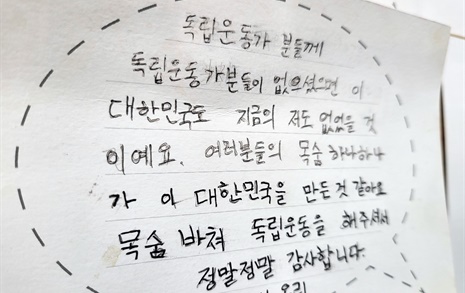 독립운동가 분들께
독립운동가분들이 없으셨으면 이
대한민국도 지금의 저도 없었을 것
이예요. 여러분들의 목숨 하나하나
가 이 대한민국을 만든것 같아요
목숨 바쳐 독립운동을 해주셔서
정말정말 감사합니다.